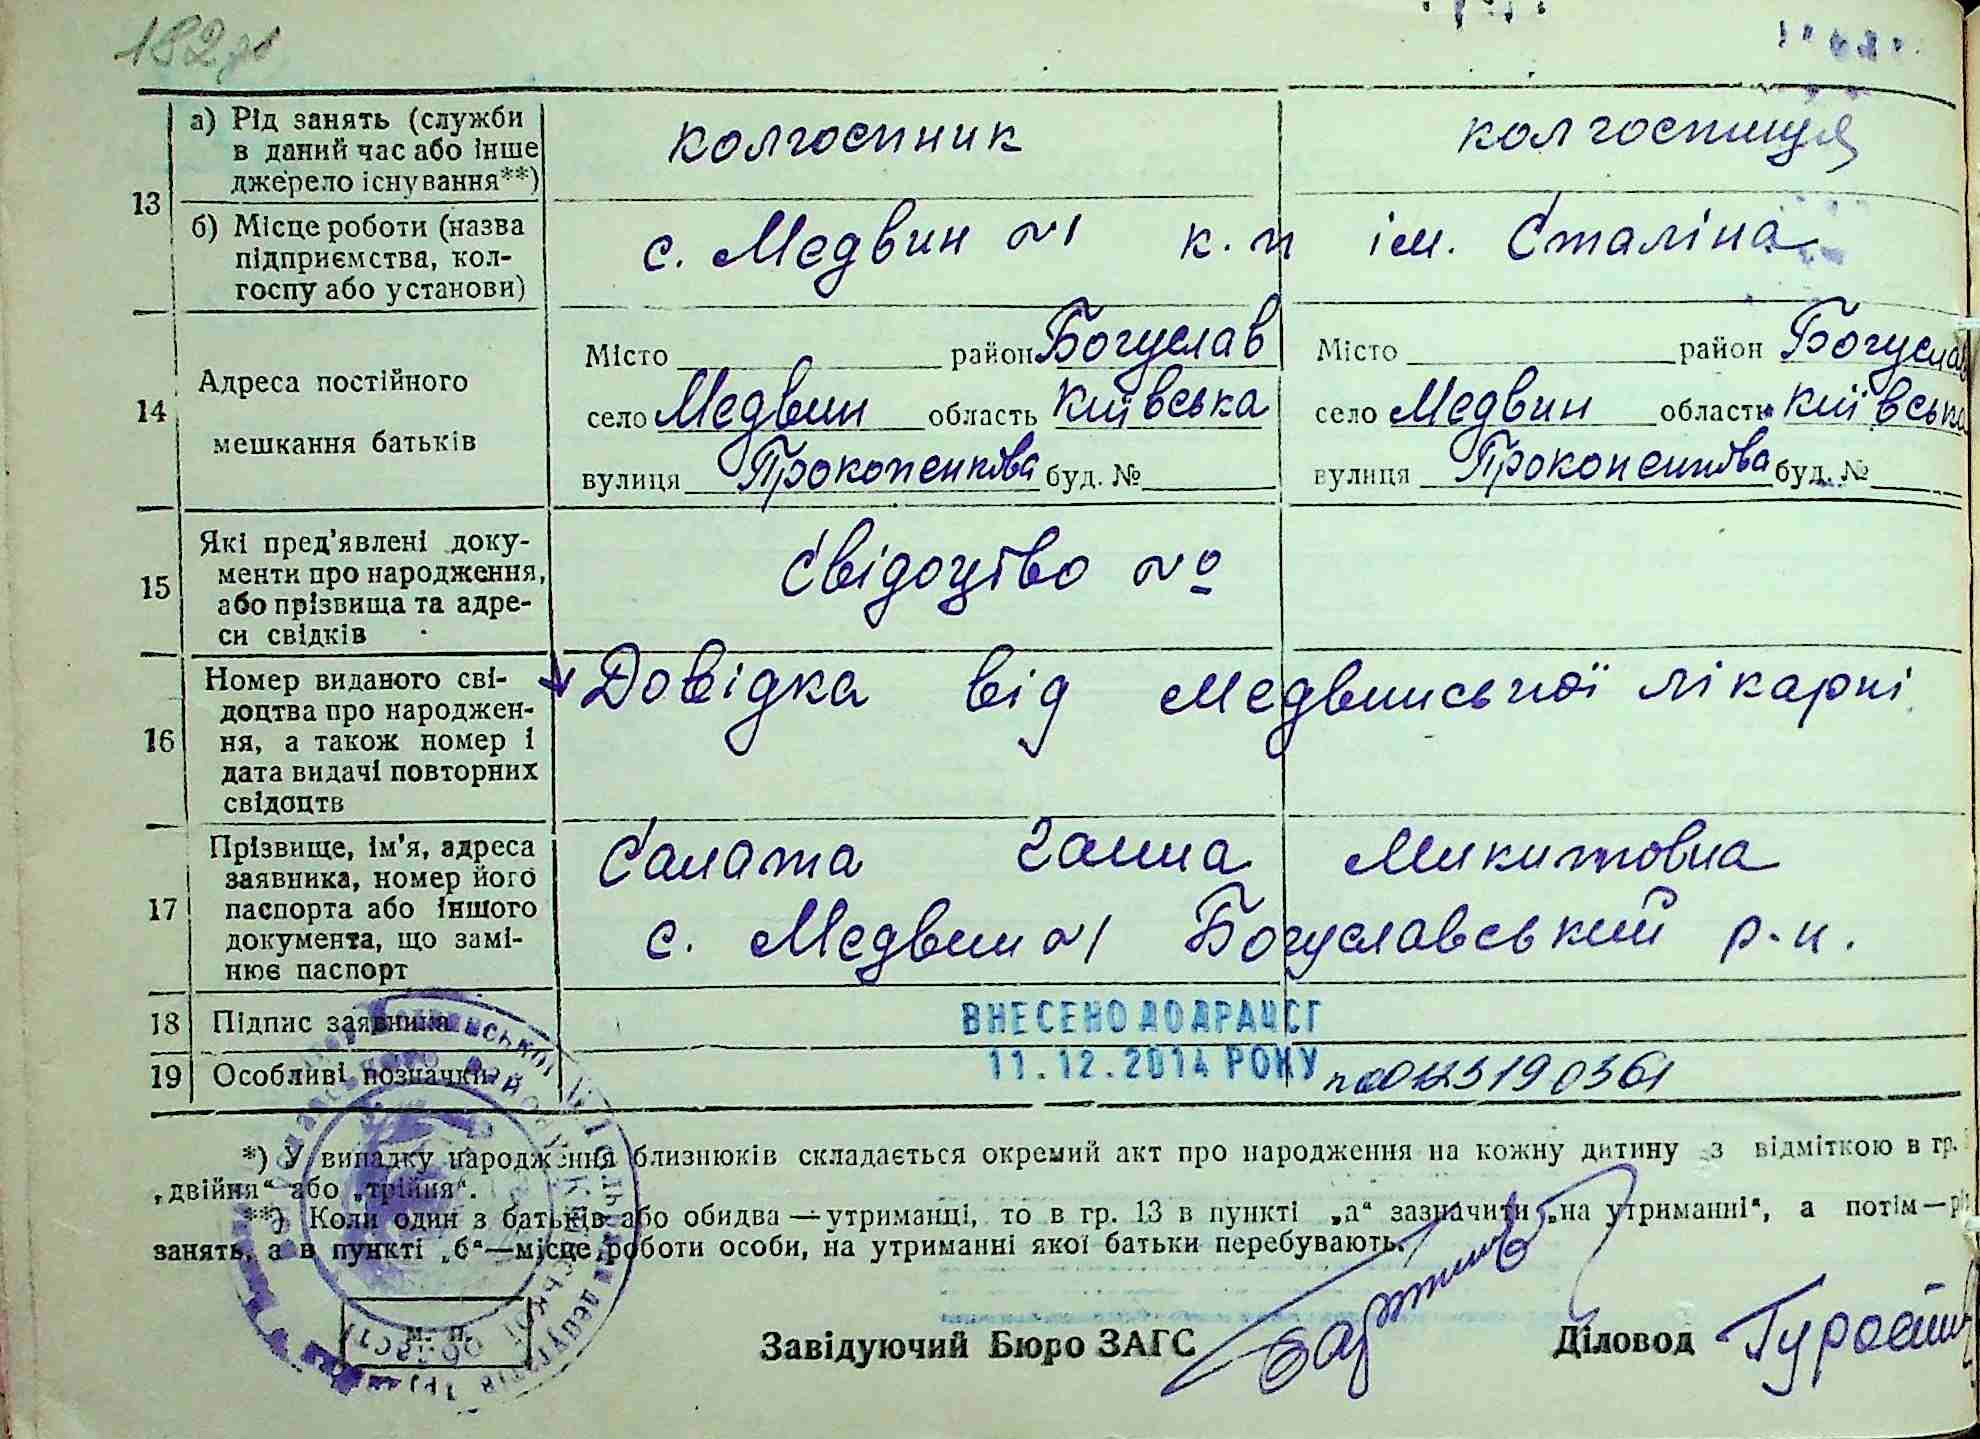 182
а) Рід занять (служби
в даний час або інше
джерело існування**)
колгоспник
колгоспниця
13
б) Місце роботи (назва
підприємства, кол-
госпу або установи)
с. Медвин №1 к.п ім. Сталіна
14
Адреса постійного
мешкання батьків
Місто район Богуслав
село Медвин область Київська
вулиця Прокопенкова буд. №
Місто район Богуслав
село Медвин область Київська
вулиця Прокопенкова буд. №
15
Які пред'явлені доку-
менти про народження,
або прізвища та адре-
си свідків
Свідоцтво №
16
Номер виданого сві-
доцтва про народжен-
ня, а також номер і
дата видачі повторних
свідоцтв
Довідка від Медвинської лікарні
17
Прізвище, ім'я, адреса
заявника, номер його
паспорта або іншого
документа, що замі-
нює паспорт
Салата Ганна Микитовна
с. Медвин №1 Богуславський р-н.
18 Підпис заявника
ВНЕСЕНО ДО ДРАЦСГ
19 Особливі позначки
11.12.2014 РОКУ
*) У випадку народження близнюків складається окремий акт про народження на кожну дитину з відміткою в гр.
„двійня“ або „трійня“.
**) Коли один з батьків або обидва — утриманці, то в гр. 13 в пункті „а“ зазначити „на утриманні“, а потім—
занять, а в пункті „б“—місце роботи особи, на утриманні якої батьки перебувають.
М. П.
Завідуючий Бюро ЗАГС
Діловод